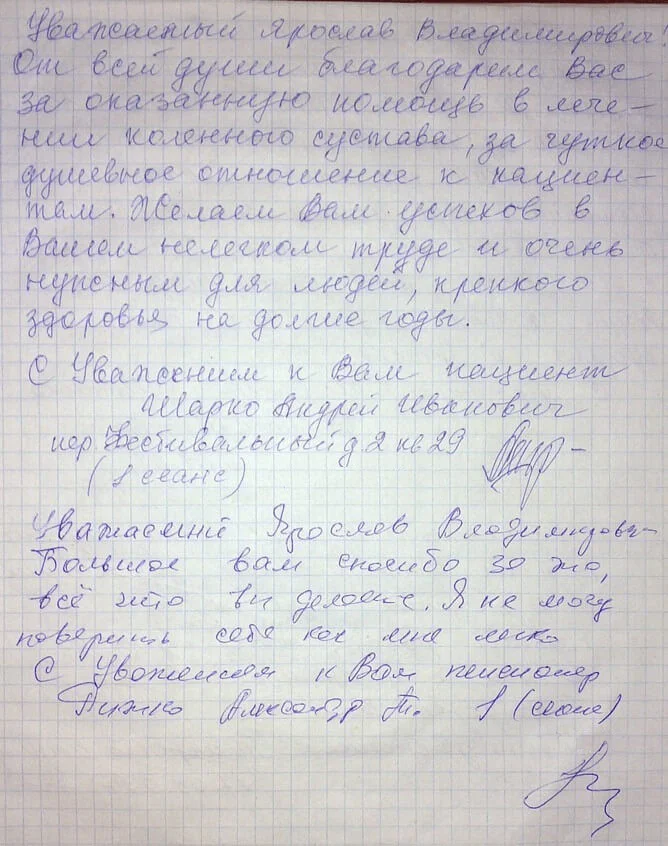 Уважаемый Ярослав Владимирович!
От всей души благодарем Вас
за оказанную помощь в лече-
нии коленного сустава, за чуткое
душевное отношение к пациен-
там. Желаем Вам успехов в
Вашем нелегком труде и очень
нужным для людей, крепкого
здоровья на долгие годы.
С Уважением к Вам пациент
Шарко Андрей Иванович
пер. Фестивальный д. 2 кв 29
(1 сеанс)
Уважаемый Ярослав Владимирович
Большое вам спосибо за то,
всё что вы делаете. Я не могу
поверить себе как мне легко
С Уважением к Вам пенсионер
Александр 1 (сеанс)